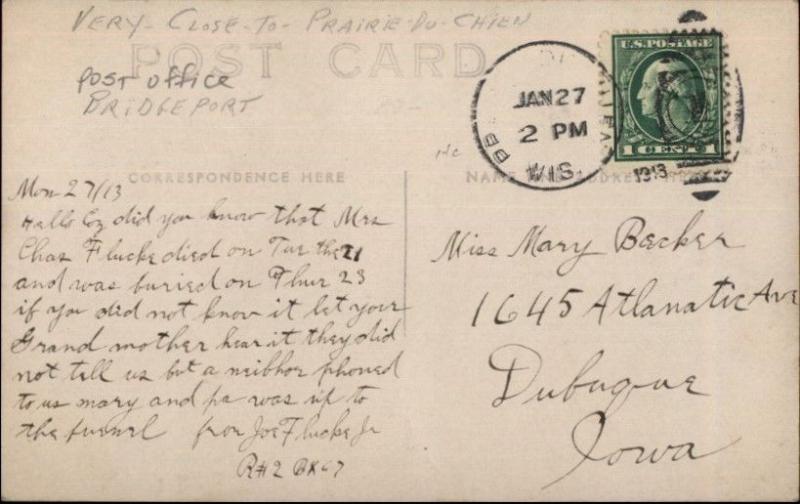 VERY - CLOSE - TO - PRAIRIE - DU - CHIEN
POST CARD
POST OFFICE
BRIDGEPORT
JAN 27
2 PM
WIS
1913
U.S. POSTAGE
1 CENT 1
CORRESPONDENCE HERE
NAME ADDRESS HERE
Mon 27/13
Hallo Coz did you know that Mrs
Chas Flucke died on Tue the 21
and was buried on Thur 23
if you did not know it let your
Grand mother hear it they did
not tell us but a neibhor phoned
to us mary and pa was up to
the funnel from Joe Flucke Jr
R#2 Bx 67
Miss Mary Becker
1645 Atlanatic Ave
Dubuque
Iowa